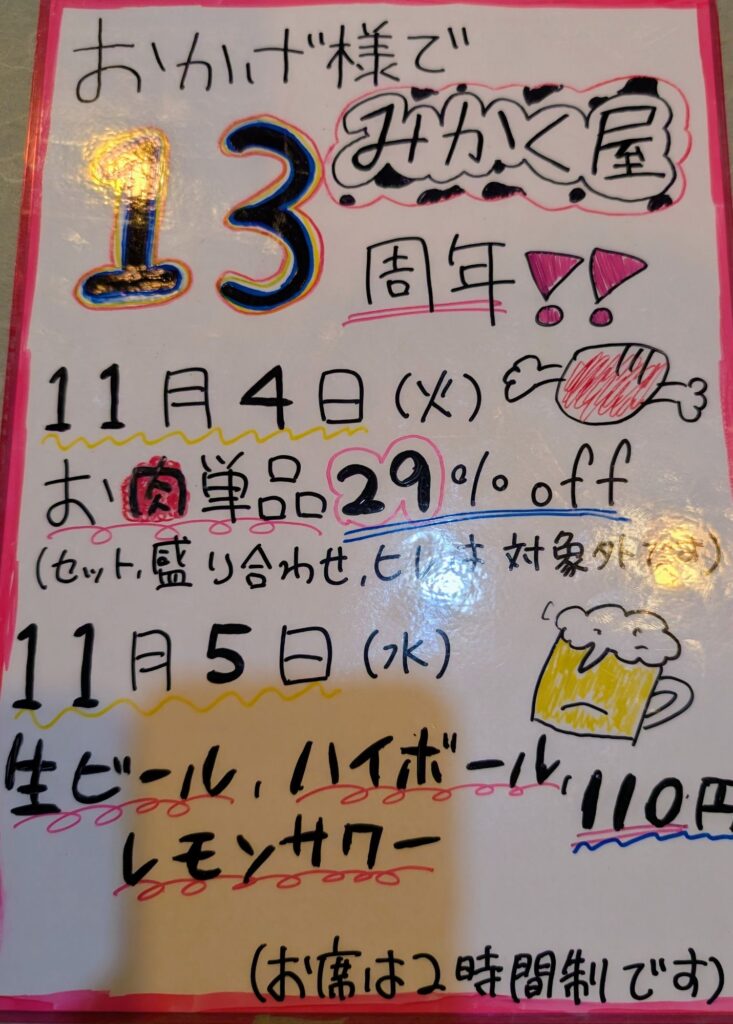 おかげ様で
みかく屋
13
周年!!
11月4日(火)
お肉単品29%off
(セット、盛り合わせ、ヒレ 対象外です)
11月5日(水)
生ビール、ハイボール、
110円
レモンサワー
(お席は2時間制です)